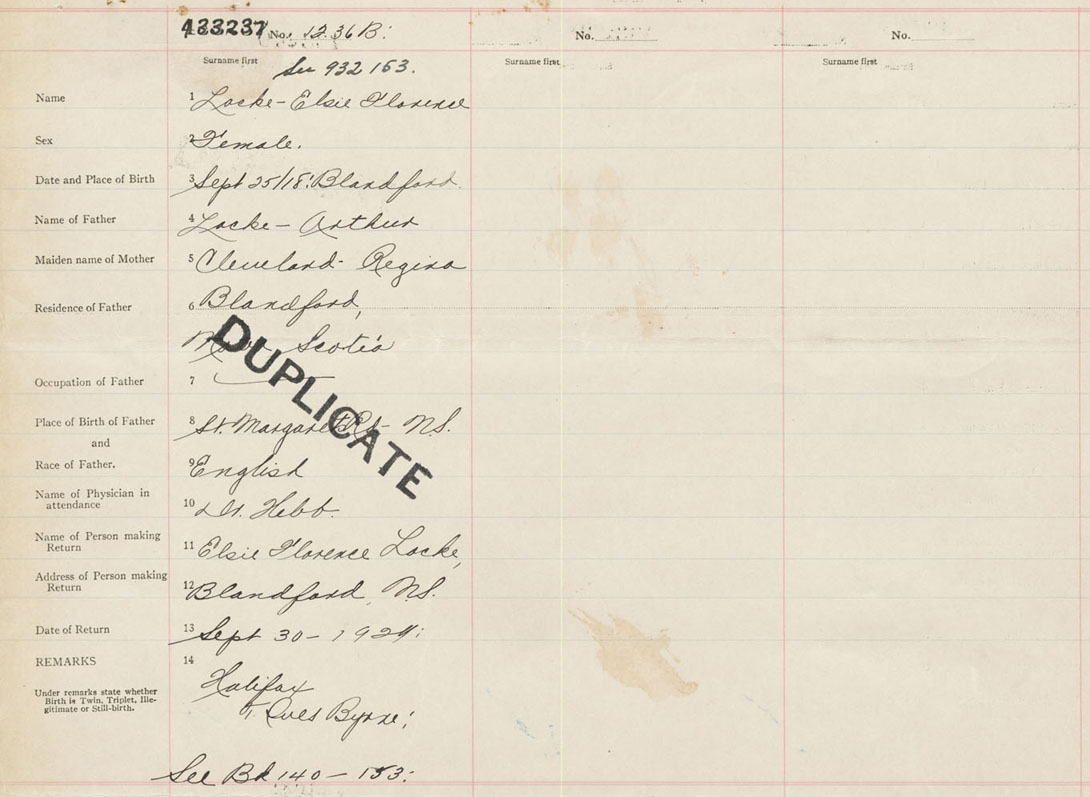 433237 No. 1236B. No. No.
Surname first Surname first Surname first
See 932 153.
Name 1 Locke - Elsie Florence
Sex 2 Female.
Date and Place of Birth 3 Sept 25/18: Blandford.
Name of Father 4 Locke - Arthur
Maiden name of Mother 5 Cleveland - Regina
Residence of Father 6 Blandford,
Nova Scotia
DUPLICATE
Occupation of Father 7
Place of Birth of Father 8 St. Margaret's - N.S.
and
Race of Father. 9 English
Name of Physician in
attendance 10 Dr. Hebb.
Name of Person making
Return 11 Elsie Florence Locke,
Address of Person making
Return 12 Blandford, N.S.
Date of Return 13 Sept 30 -
REMARKS 14
Halifax
Under remarks state whether
Birth is Twin, Triplet, Ille-
gitimate or Still-birth.
Byrne:
See Bk 140 - 153: